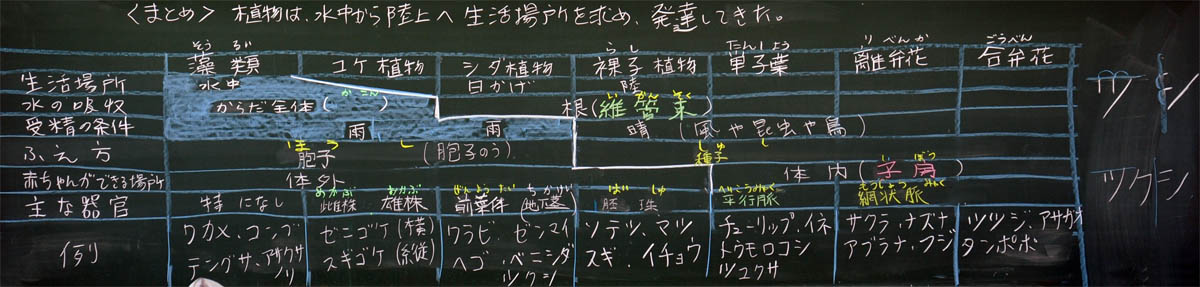 <まとめ> 植物は、水中から陸上へ生活場所を求め、発達してきた。
そうるい らし たんしよう りべんか ごうべん
藻類 コケ植物 シダ植物 裸子植物 単子葉 離弁花 合弁花
生活場所 水中 日かげ 陸
水の吸収 からだ全体( ) 根(維管束)
いかんそく
受精の条件 雨 雨 晴 (風や昆虫や鳥)
ほうし しゅし
ふえ方 胞子 (胞子のう) 種子
しぼう
赤ちゃんができる場所 体外 体内(子房)
めかぶ おかぶ ぜんようたい ちかけい はいしゅ へいこうみゃく もうじょうみゃく
主な器官 特になし 雌株 雄株 前葉体(地下茎) 胚珠 平行脈 網状脈
例 ワカメ、コンブ ゼニゴケ(横) ワラビ、ゼンマイ ソテツ、マツ チューリップ、イネ サクラ、ナズナ ツツジ、アサガオ
テングサ、アサクサノリ スギゴケ(縦) ヘゴ、ベニシダ スギ、イチョウ トウモロコシ アブラナ、フジ タンポポ
ツクシ ツユクサ
ツクシ